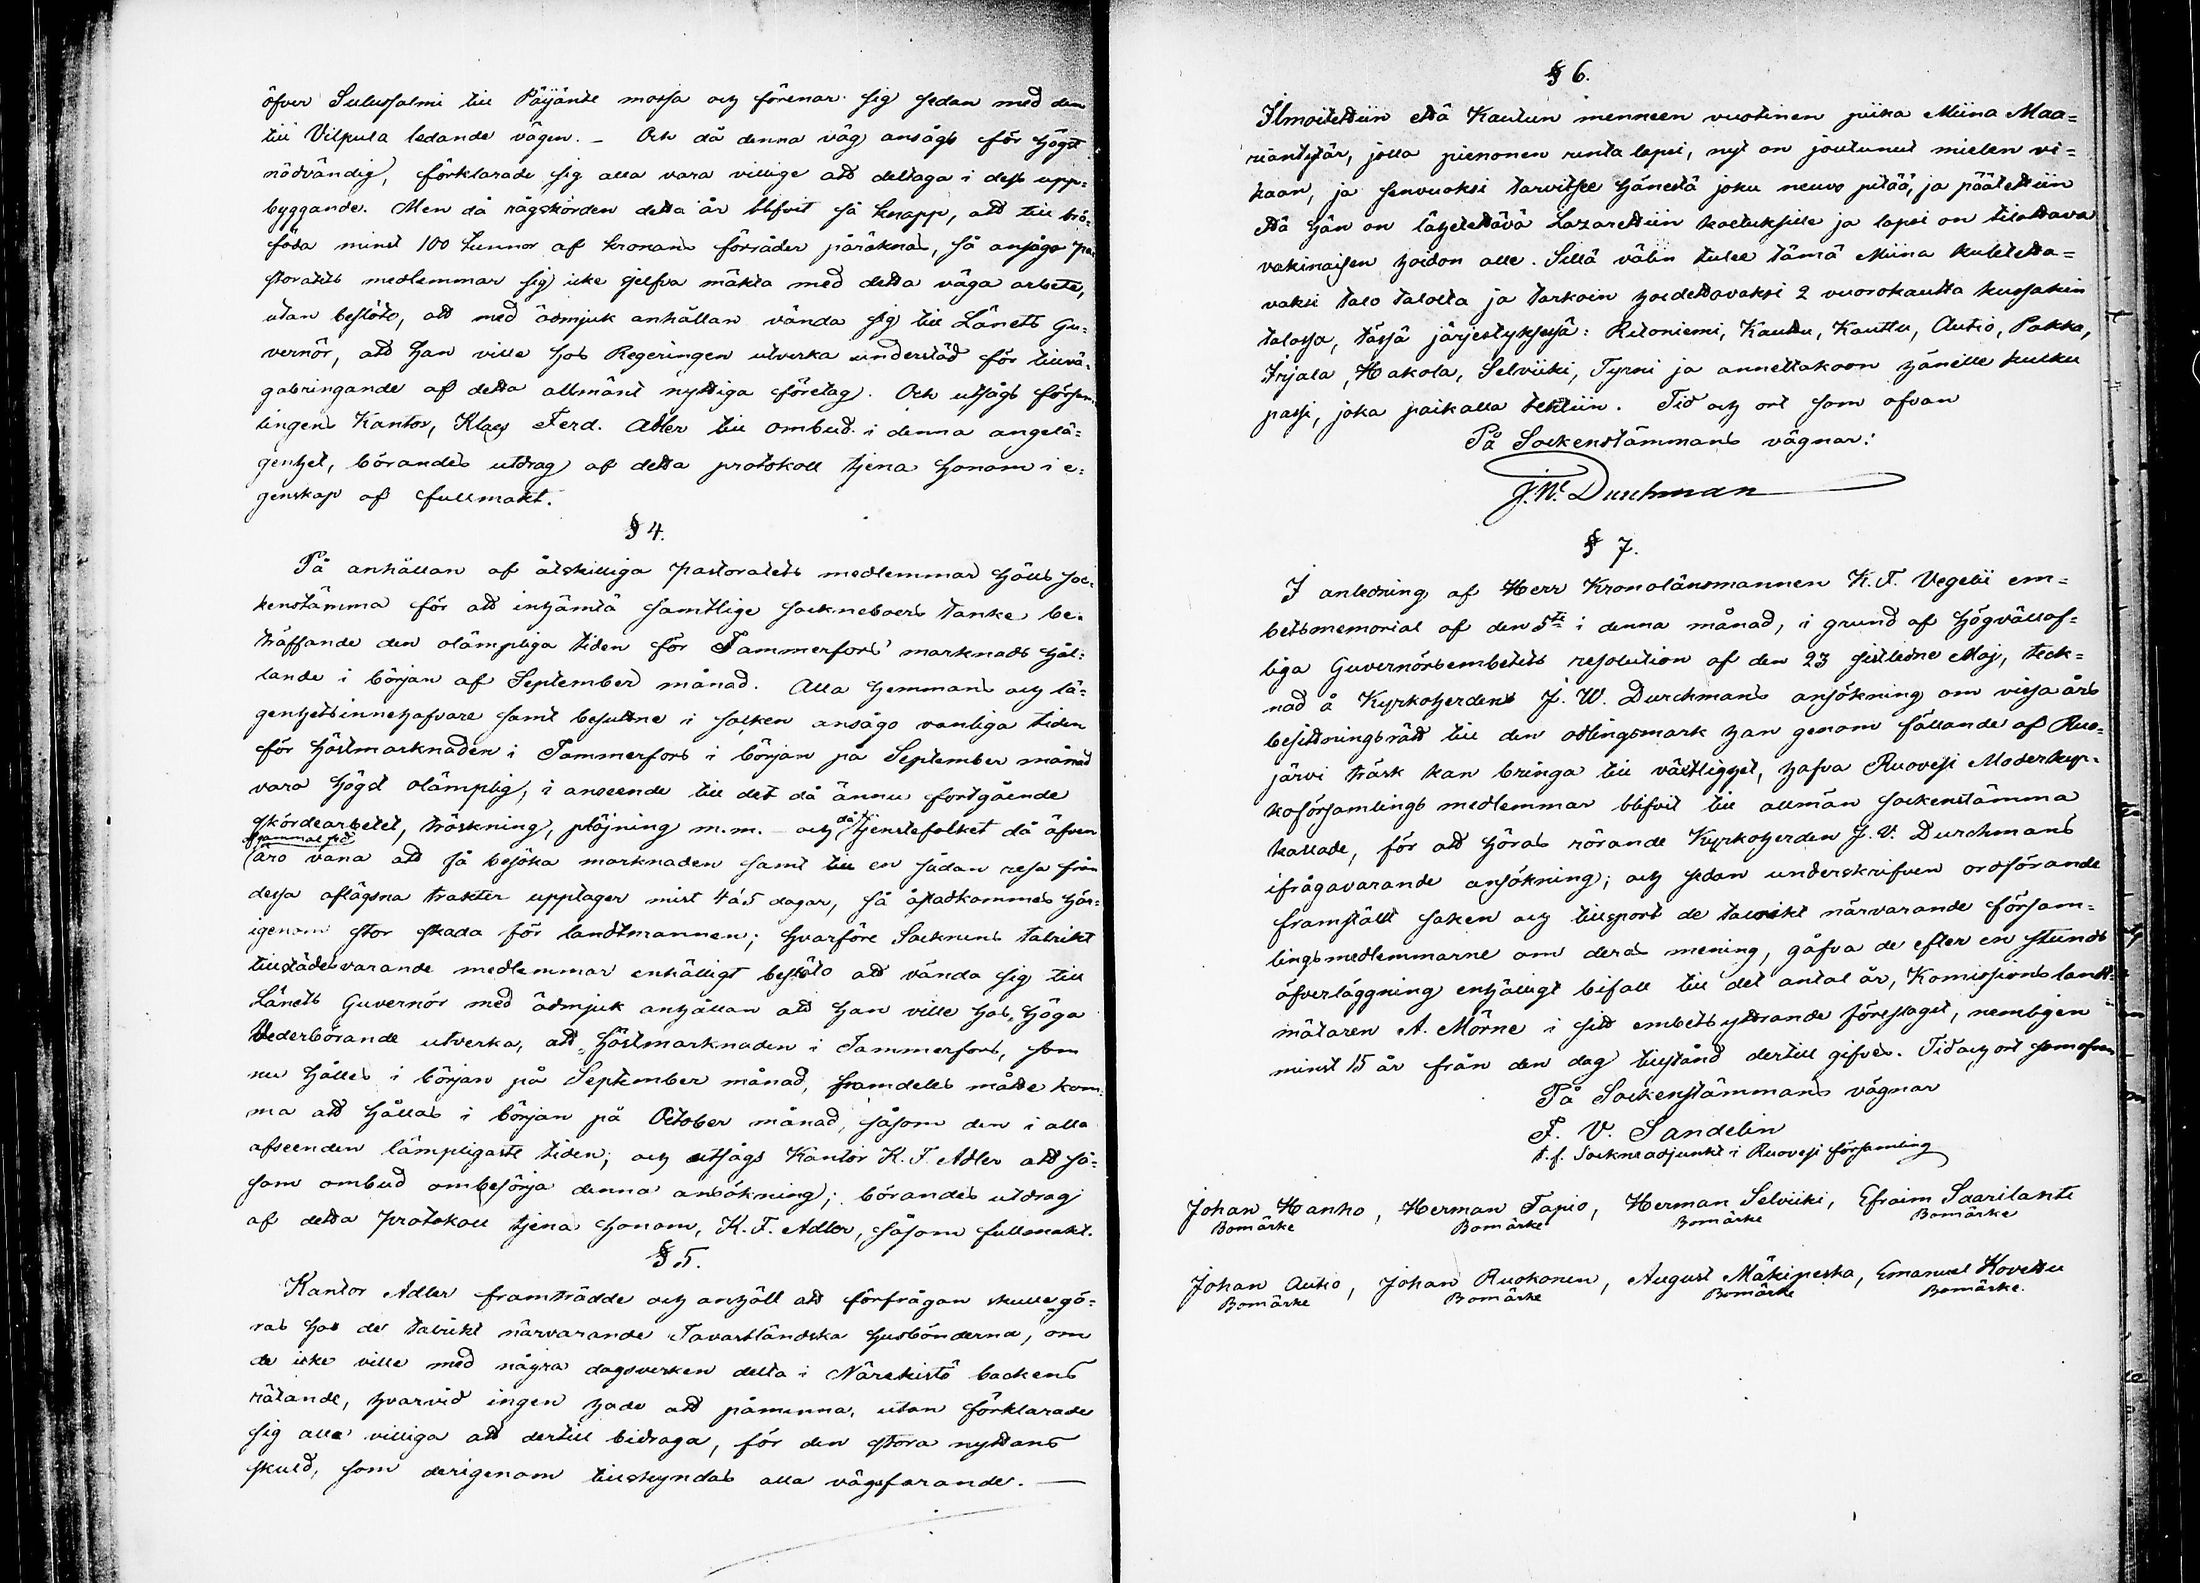 öfver Sulussalmi till Päijände mossa och förenar sig sedan med den
till Vilpula ledande vägen. – Och då denna väg ansågs för högst
nödvändig, förklarade sig alla vara villige att deltaga i dess upp-
byggande. Men då rågskörden detta år blifvit så knapp, att till brö-
föda minst 100 tunnor af kronans förråder påräknas, så ansågo pa-
storatets medlemmar sig icke sjelfva mäkta med detta väga arbete,
utan beslöto, att med ödmjuk anhållan vända sig till Länets Gu-
vernör, att han ville hos Regeringen utverka understöd för tillvä-
gabringande af detta allmänt nyttiga företag. Och utsågs försam-
lingens Kantor, Klas Ferd. Adler till ombud i denna angelä-
genhet, börandes utdrag af detta protokoll tjena honom i e-
genskap af fullmakt.
§ 4.
På anhållan af åtskilliga pastoratets medlemmar hölls soc-
kenstämma för att inhämta samtlige sockneboers tanke be-
träffande den olämpliga tiden för Tammerfors' marknads hål-
lande i början af September månad. Alla hemmans och lä-
genhetsinnehafvare samt besutne i socken ansågo vanliga tiden
för höstmarknaden i Tammerfors i början på September månad
vara högst olämplig, i anseende till det då ännu fortgående
skördearbetet, tröskning, plöjning m.m. och då tjenstefolket då äfven
af gammal sed
äro vana att få besöka marknaden samt till en sådan resa från
dessa aflägsna trakter upptager minst 4 à 5 dagar, så åstadkommes här-
igenom stor skada för landtmannen; hvarföre Socknens talrikt
tillstädesvarande medlemmar enhälligt beslöto att vända sig till
Länets Guvernör med ödmjuk anhållan att han ville hos Höga
Vederbörande utverka, att Höstmarknaden i Tammerfors, som
nu hålles i början på September månad, framdeles måtte kom-
ma att hållas i början på October månad, såsom den i alla
afseenden lämpligaste tiden; och utsågs Kantor K. F. Adler att så-
som ombud ombesörja denna ansökning; börandes utdrag
af detta protokoll tjena honom, K. F. Adler, såsom fullmakt.
§ 5.
Kantor Adler framträdde och anhöll att förfrågan skulle gö-
ras hos de talrikt närvarande Tavastländska husbönderna, om
de icke ville med några dagsverken delta i Närekistö backens
rätande, hvarvid ingen hade att påminna, utan förklarade
sig alla villiga att dertill bidraga, för den stora nyttans
skuld, som derigenom tillskyndas alla vägafarande. —
§ 6.
Ilmoitettiin että Kautun menneen vuotinen piika Miina Maa-
riantytär, jolla pienonen rinta lapsi, nyt on joutunut mielen vi-
kaan, ja senvuoksi tarvitsee hänestä joku neuvo pitää, ja päätettiin
että hän on lähetettävä Lazarettiin koetuksille ja lapsi on tilattava
vakinaisen hoidon alle. Sillä välin tulee tämä Miina kuletetta-
vaksi talo talolta ja tarkoin hoidettavaksi 2 vuorokautta kussakin
talossa, tässä järjestyksessä: Ritoniemi, Kauttu, Kauttu, Autio, Pakka,
Irjala, Hakola, Selviiki, Tyrni ja annettakoon hänelle kulku
passi, joka paikalla tehtiin. Tid och ort som ofvan
På Sockenstämmans vägnar:
J. W. Durchman
§ 7.
I anledning af Herr Kronolänsmannen K. F. Vegelii em-
betsmemorial af den 5te i denna månad, i grund af högvällof-
liga Guvernörsembetets resolution af den 23 sistledne Maj, teck-
nad å Kyrkoherdens J. W. Durchmans ansökning om vissa års
besittningsrätt till den odlingsmark han genom fällande af Ruo-
järvi träsk kan bringa till växtlighet, hafva Ruovesi Moderkyr-
koförsamlings medlemmar blifvit till allmän sockenstämma
kallade, för att höras rörande Kyrkoherden J. V. Durchmans
ifrågavarande ansökning; och sedan underskrifven ordförande
framställt saken och tillsport de talrikt närvarande försam-
lingsmedlemmarne om deras mening, gåfva de efter en stunds
öfverläggning enhälligt bifall till det antal år, Komissionslandt-
mätaren A. Mörne i sitt embetsyttrande föreslagit, nemligen
minst 15 år från den dag tillstånd dertill gifves. Tid och ort som ofvan
På Sockenstämmans vägnar
F. V. Sandelin
t. f. Sockneadjunkt i Ruovesi församling
Johan Hanho, Herman Tapio, Herman Selviiki, Efraim Saarilanti
Bomärke Bomärke Bomärke Bomärke
Johan Autio, Johan Ruokonen, August Mäkipeska, Emanuel Kovettu
Bomärke Bomärke Bomärke Bomärke.